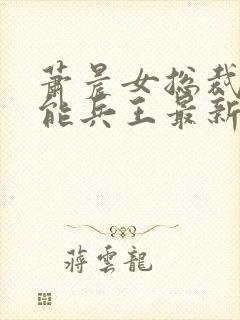 萧晨女总裁
能兵王最新
蒋云龙